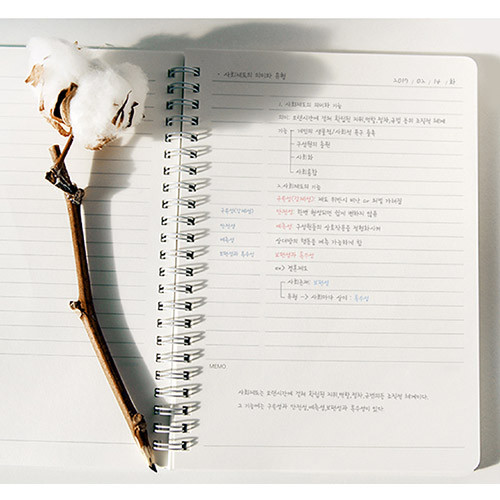 · 사회제도의 의미와 유형
2017 / 02 / 14 / 화
1. 사회제도의 의미와 기능
의미: 오랜시간에 걸쳐 확립된 지위,역할,절차,규범 등의 조직적 체계
기능 개인의 생물적/사회적 욕구 충족
구성원의 충원
사회화
사회통합
2.사회제도의 기능
구속성(강제성) 구속성(강제성): 제도 위반시 비난 or 처벌 가해짐
안정성 안정성: 한번 형성되면 쉽게 변하지 않음
예측성 예측성: 구성원들의 상호작용을 정형화시켜
상대방의 행동을 예측 가능하게 함
보편성과 특수성 보편성과 특수성
ex) 결혼제도
사회존재: 보편성
유형 -> 사회마다 상이 : 특수성
MEMO
사회제도는 오랜시간에 걸쳐 확립된 지위,역할,절차,규범등의 조직적 체계이다.
그 기능에는 구속성과 안정성,예측성,보편성과 특수성이 있다.